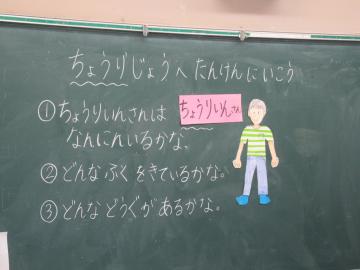 ちょうりじょうへ たんけんにいこう
①ちょうりいんさんは
ちょうりいんさん
なんにんいるかな。
②どんなふくをきているかな。
③どんなどうぐがあるかな。